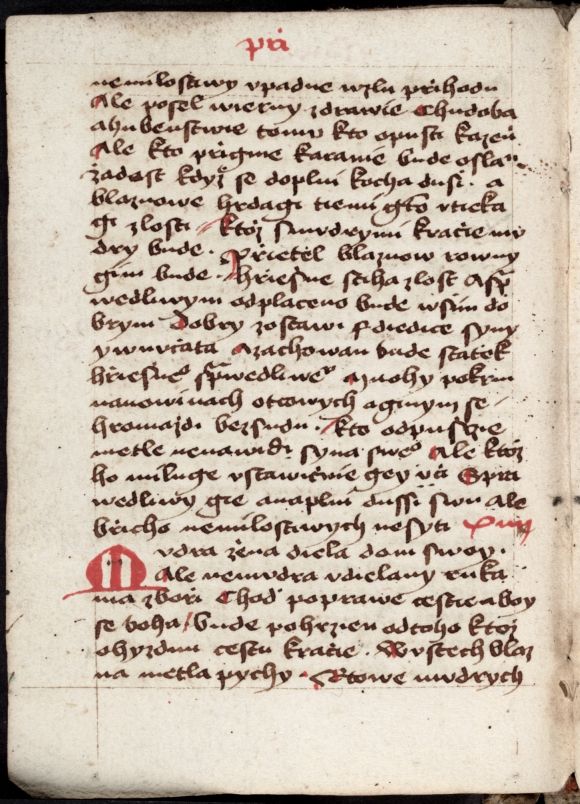 pri
nemilostiwy vpadne wzlu prihodu
Ale posel wierny zdrawie Chudoba
ahubenstwie tomu kto opusti kazen
Ale kto prigme karanie bude osla
zadost kdyz se doplni kocha dusi · a
blaznowe hrdagi tiemi gto vtieka
gi zlosti ktoz smudrymi kracie mu
dry bude · prietel blaznow rowny
gim bude · hriesne stiha zlost Asp
wedliwym odplaceno bude wsim do
brym Dobry zostawi diedice syny
ywnucata azachowan bude statek
hriesne sprwedliwe mnohy pokrm
nanowinach otcowych aginym se
hromazdi bezsudu · kto odpusczie
metle nenawidi syna swe Ale ktoz
ho miluge vstawicnie gey vci Spra
wedliwy gie anaplni dussi swu ale
bricho nemilostiwych nesyti xiiii
Mudra zena diela dom swoy ·
Ale nemudra vdielany ruka
ma zbori Chod poprawe cestie aboy
se boha bude pohrzien odtoho ktoz
ohyzdnu cestu kracie · Wustech blaz
na metla pychy · Rtowe mudrych